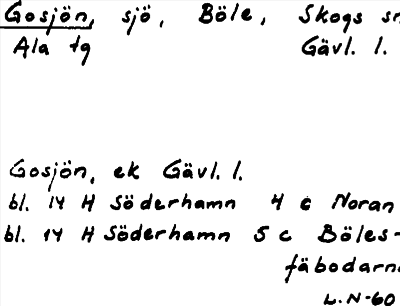 Gosjön, sjö, Böle, Skogs sn
Ala tg Gävl. l.
Gosjön, ek Gävl. l.
bl. 14 H Söderhamn 4 c Noran
bl. 14 H Söderhamn 5 c Böles-
fäbodarna
L.N-60